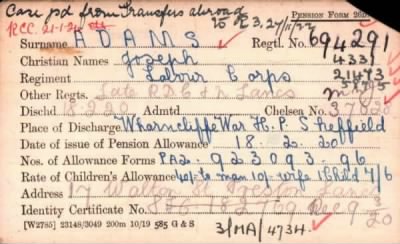 Case pd from Transfers abroad
to E3, 27/11/22
PENSION FORM 26
RCC. 21-1-24
Surname ADAMS Regtl. No. 694291
Christian Names Joseph 4331
Regiment Labour Corps 21473
Other Regts. Late R.D.C & N. Lancs
Dischd 18.2.20 Admtd. Chelsea No.
Place of Discharge Wharncliffe War H.P. Sheffield
Date of issue of Pension Allowance 18.2.20
Nos. of Allowance Forms PA20. 923093-96
Rate of Children's Allowance 40/- to man 10/- wife 1 Child 7/6
Address 17 Walton St Preston Lancs
Identity Certificate No. Rec 9 3/20
[W2785] 23148/3049 200m 10/19 585 G & S 3/MA/4734.